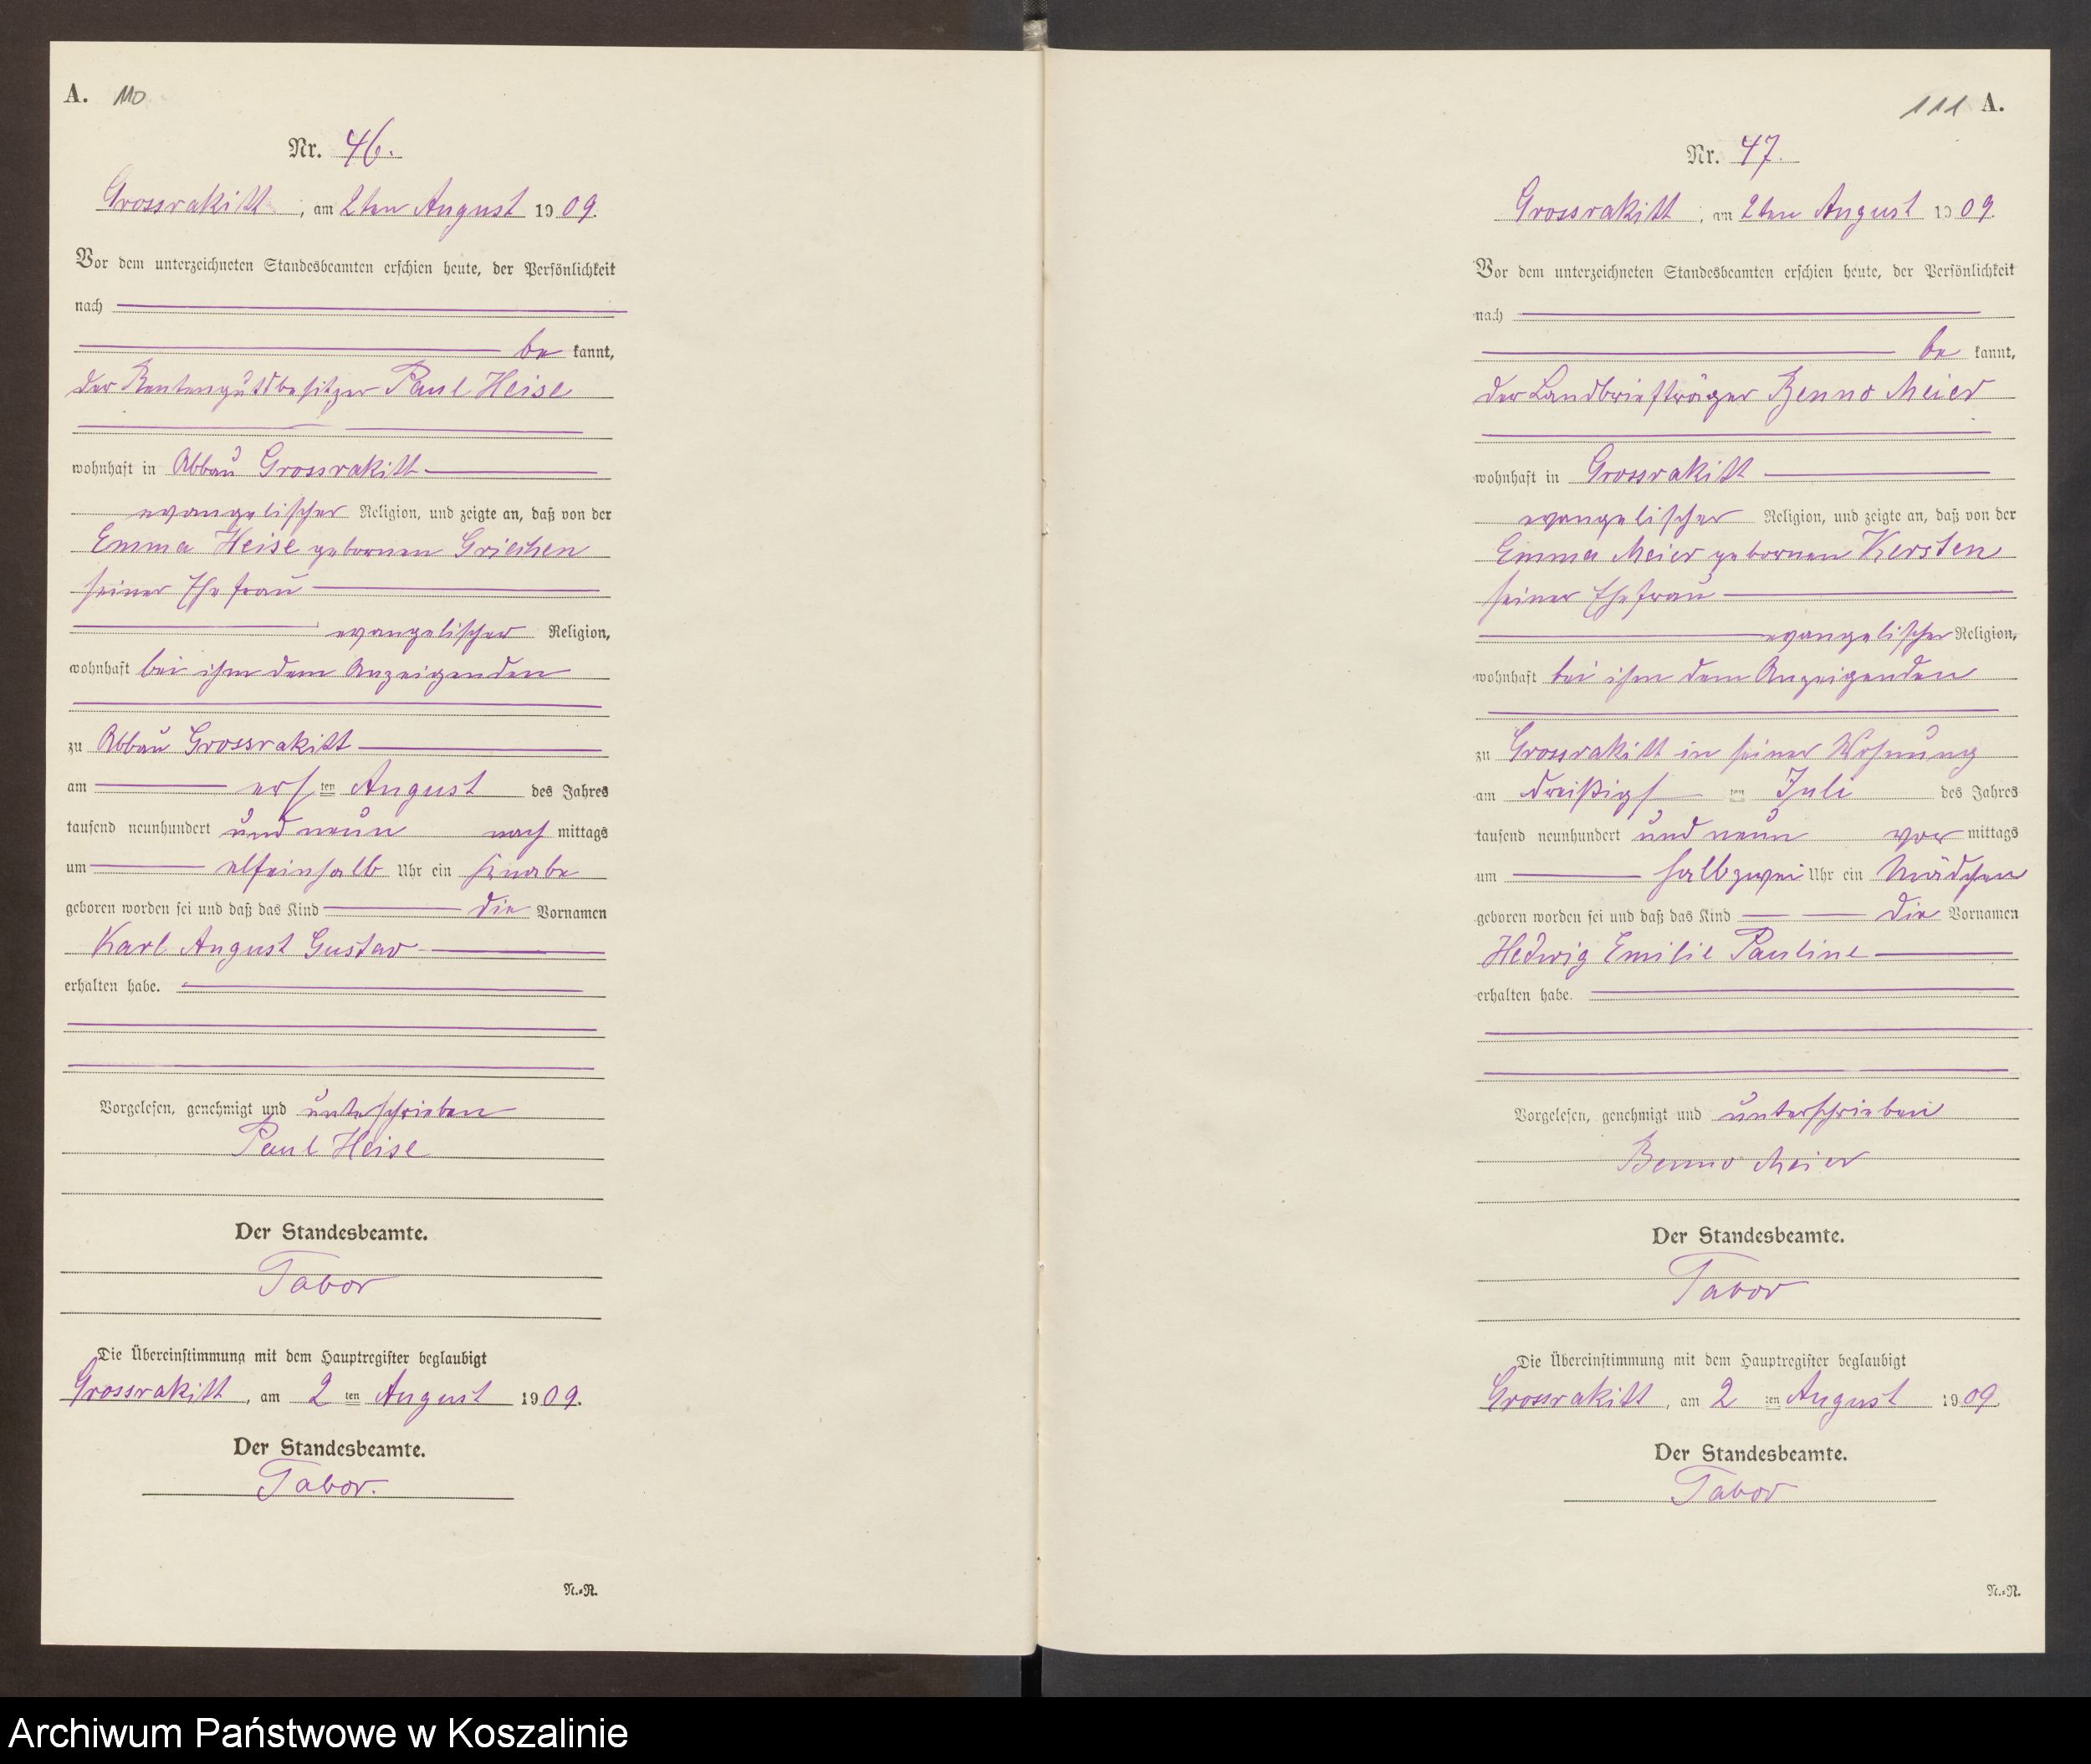 A. 110
Nr. 46.
Grossrakitt, am 2ten August 1909.
Vor dem unterzeichneten Standesbeamten erschien heute, der Persönlichkeit
nach
be kannt,
der Rentengutsbesitzer Paul Heise
wohnhaft in Abbau Grossrakitt
evangelischer Religion, und zeigte an, daß von der
Emma Heise gebornen Griechen
seiner Ehefrau
evangelischer Religion,
wohnhaft bei ihm dem Anzeigenden
zu Abbau Grossrakitt
am ersten August des Jahres
tausend neunhundert und neun nachmittags
um elfeinhalb Uhr ein Knabe
geboren worden sei und daß das Kind die Vornamen
Karl August Gustav
erhalten habe.
Vorgelesen, genehmigt und unteschrieben
Paul Heise
Der Standesbeamte.
Tabor
Die Übereinstimmung mit dem Hauptregister beglaubigt
Grossrakitt, am 2ten August 1909.
Der Standesbeamte.
Tabor.
N.=R.
111 A.
Nr. 47.
Grossrakitt, am 2ten August 1909.
Vor dem unterzeichneten Standesbeamten erschien heute, der Persönlichkeit
nach
be kannt,
der Landbriefträger Benno Meier
wohnhaft in Grossrakitt
evangelischer Religion, und zeigte an, daß von der
Emma Meier gebornen Kersten
seiner Ehefrau
evangelischer Religion,
wohnhaft bei ihm dem Anzeigenden
zu Grossrakitt in seiner Wohnung
am dreißigsten Juli des Jahres
tausend neunhundert und neun vormittags
um halbzwei Uhr ein Mädchen
geboren worden sei und daß das Kind die Vornamen
Hedwig Emilie Pauline
erhalten habe.
Vorgelesen, genehmigt und unterschrieben
Benno Meier
Der Standesbeamte.
Tabor
Die Übereinstimmung mit dem Hauptregister beglaubigt
Grossrakitt, am 2ten August 1909.
Der Standesbeamte.
Tabor
N.=R.
Archiwum Państwowe w Koszalinie